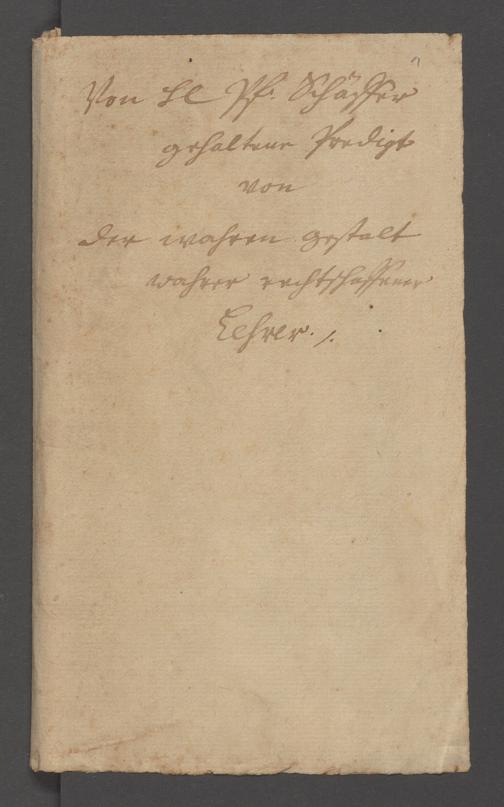 Von HE Pf. Schäffer
gehaltene Predigt
von
der wahren gestalt
wahrer rechtschaffener
Lehrer ./.